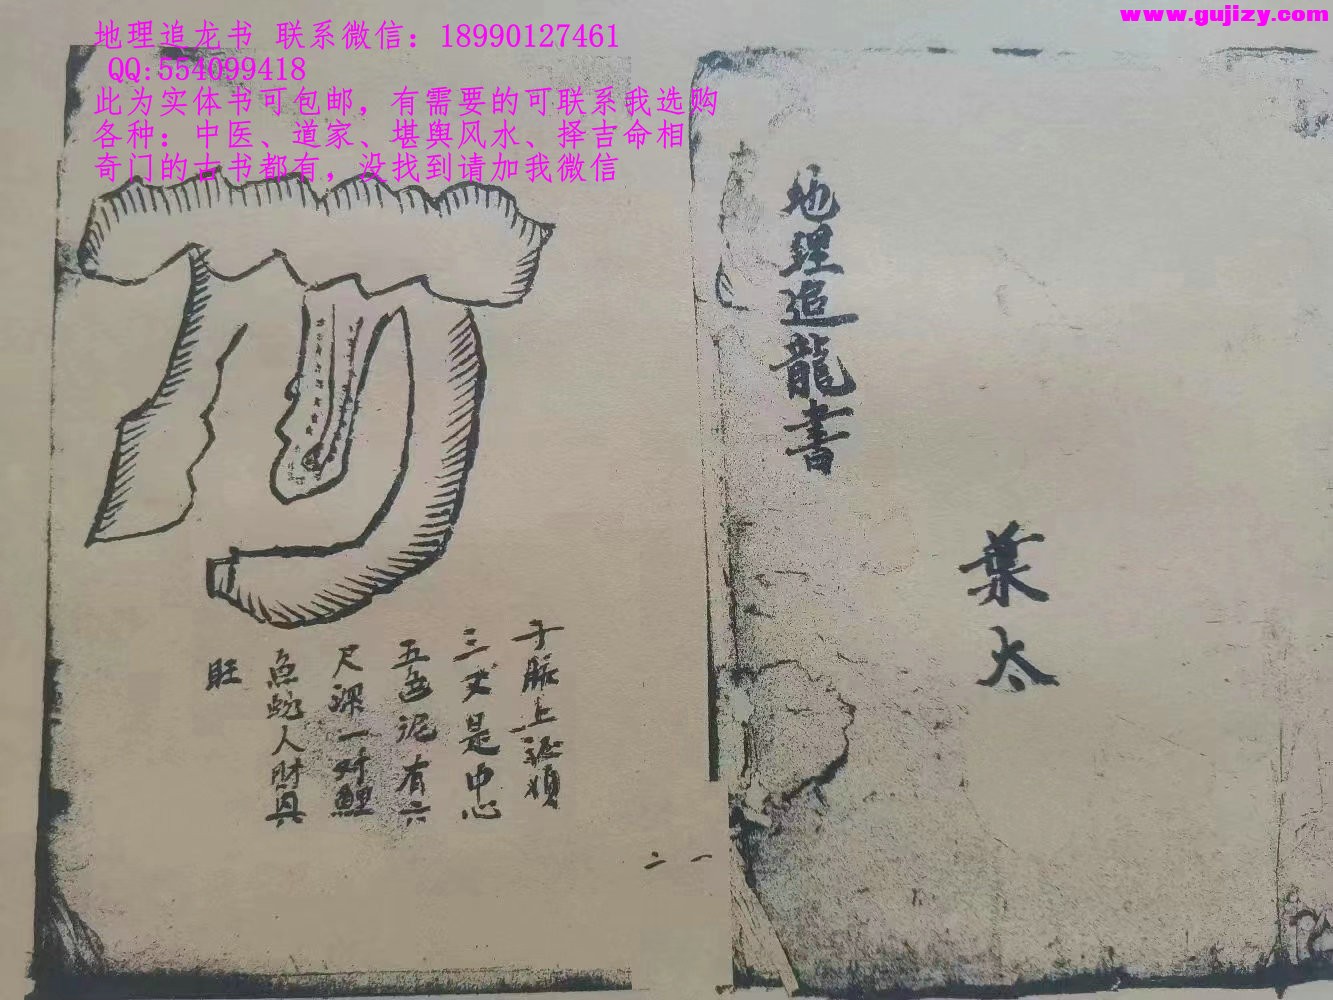 www.gujizy.com
地理追龙书 联系微信：18990127461
QQ:554099418
此为实体书可包邮，有需要的可联系我选购
各种：中医、道家、堪舆风水、择吉命相
奇门的古书都有，没找到请加我微信
地理追龍書
葉太
于脈上
三丈是中心
五色泥有六
尺深一对鯉
魚蛇人財具
旺
一
二